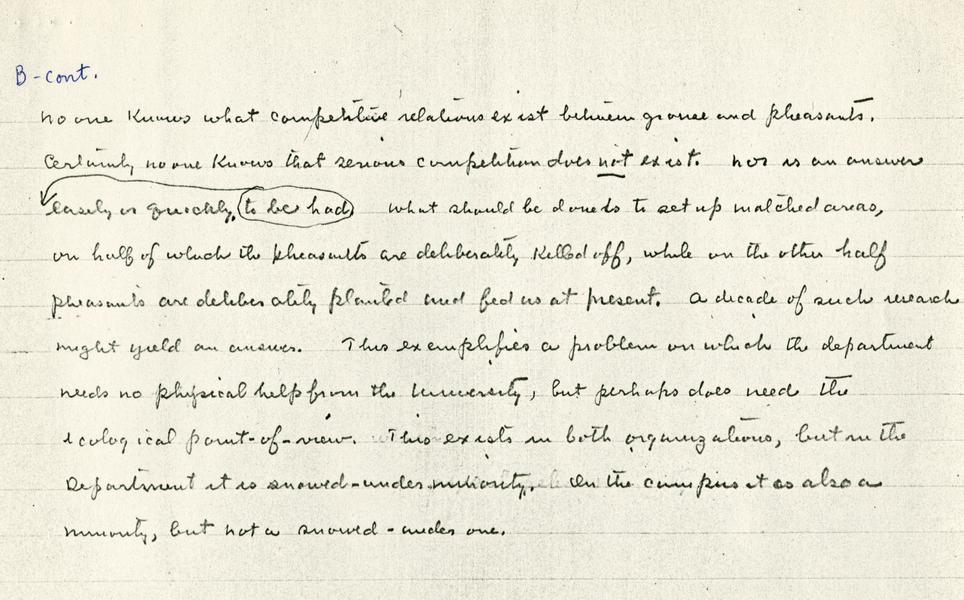 B-cont.
No one knows what competitive relations exist between grouse and pheasants.
Certainly no one knows that serious competition does not exist. Nor is an answer
easily or quickly, to be had. What should be done is to set up matched areas,
on half of which the pheasants are deliberately killed off, while on the other half
pheasants are deliberately planted and fed as at present. A decade of such research
might yield an answer. This exemplifies a problem on which the department
needs no physical help from the University, but perhaps does need the
ecological point-of-view. This exists in both organizations, but in the
Department it is snowed-under minority. On the campus it is also a
minority, but not a snowed-under one.